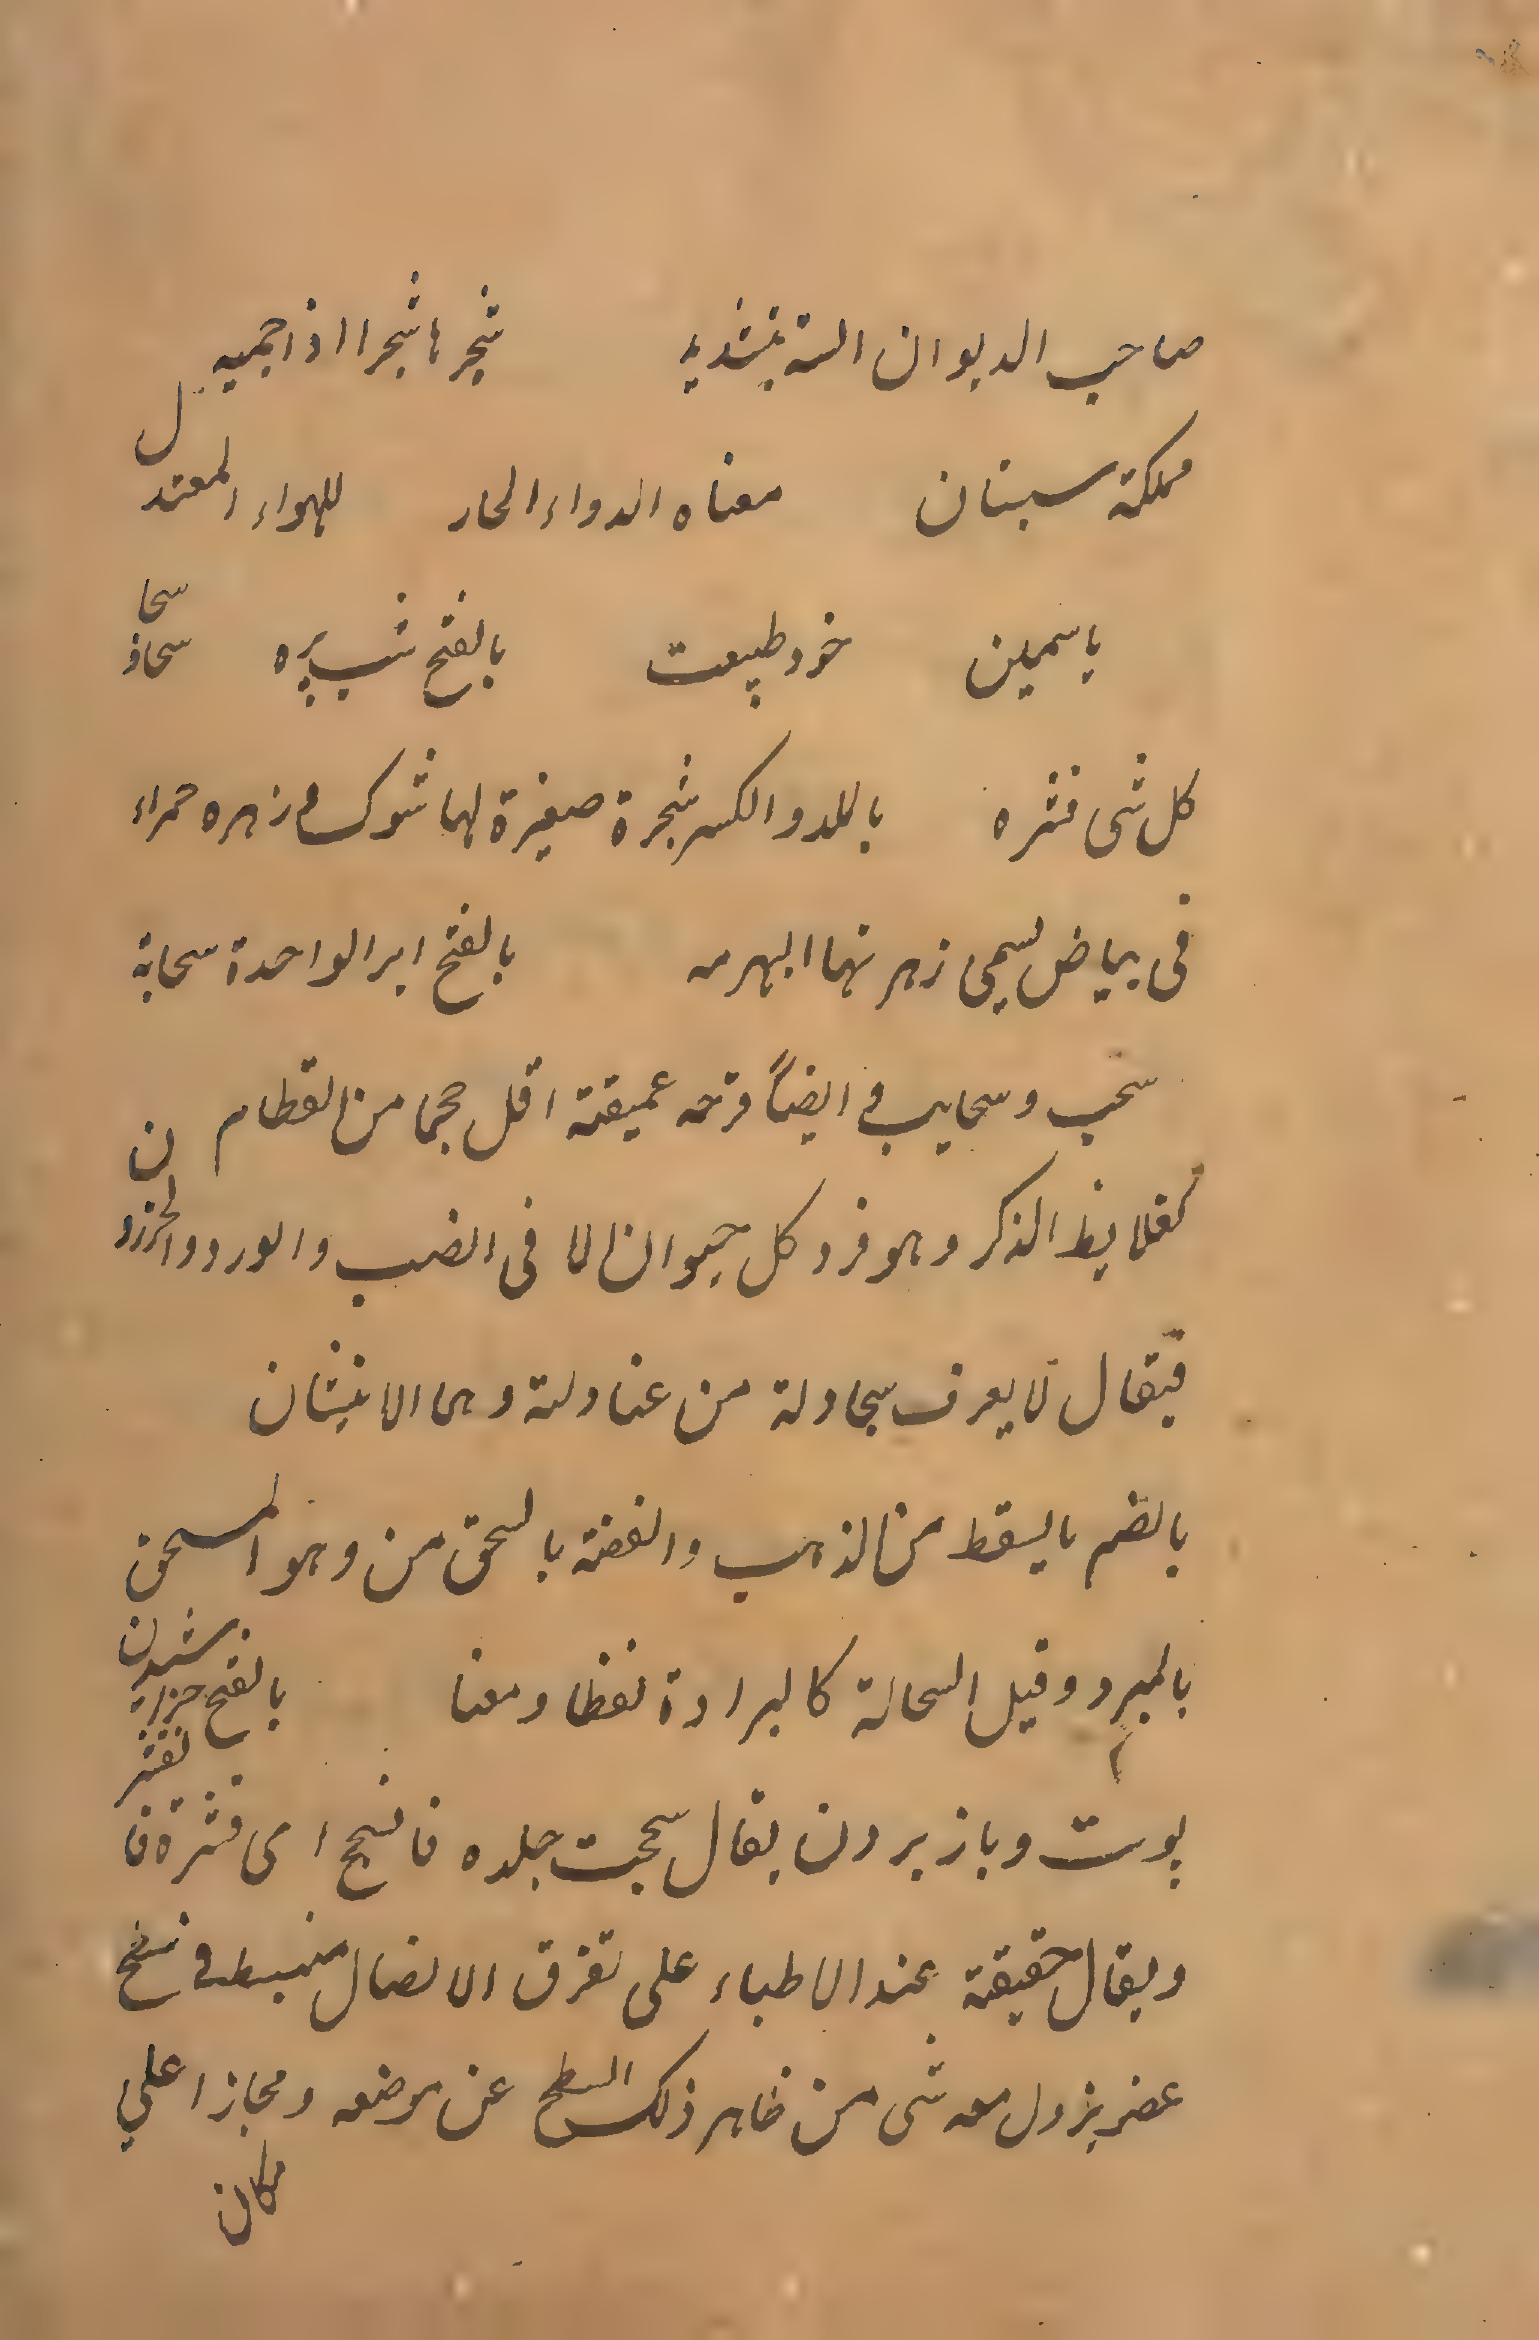 صاحب الديوان السة بنشديد شجرها شجرا اذا حميه
مملكة سبنان معناه الدواء الحار للهواء المعتدل
ياسمين خود طبيعت بالفتح شب پره سحا سحاذ
كل شى قشره بالمد والكسر شجرة صغيرة لها شوك و زهره حمراء
فى بياض يسمى زهرتها البهرمه بالفتح ابر الواحدة سحابة
سحب وسحايب و ايضاً قرحه عميقة اقل حجما من القطام
الذكر وهو فرد كل حيوان الا فى الضب والورد والحرذون
فيقال لا يعرف سحادلة من عنادلة وهى الانيثان
بالضم ما يسقط من الذهب والفضة بالسحق من وهو المسحق
بالمبرد وقيل السحالة كالبرادة لفظا ومعنا بالفتح خراشيدن
پوست وباز بردن يقال سحجت جلده فانسحج اى قشرة فانقشر
ويقال حقيقة عند الاطباء على تفرق الاتصال منبسط فى سطح
عضو يزول معه شى من ظاهر ذلك السطح عن موضعه ومجازا على
مكان